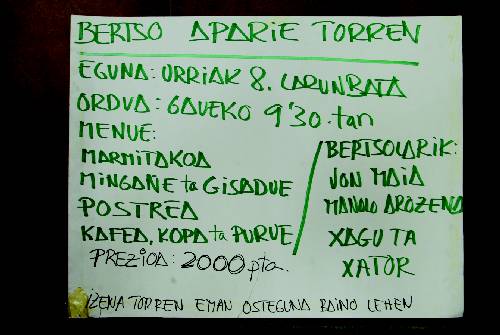 BERTSO APARIE TORREN
EGUNA: URRIAK 8. LARUNBATA
ORDUA: GAUEKO 9'30.tan
MENUE:
MARMITAKOA
MINGAÑE ta GISADUE
POSTREA
KAFEA, KOPA ta PURUE
PREZIOA: 2000 pta.
BERTSOLARIK:
JON MAIA
MANOLO AROZENA
XAGU TA
XATOR
IZENA TORREN EMAN OSTEGUNA BAINO LEHEN